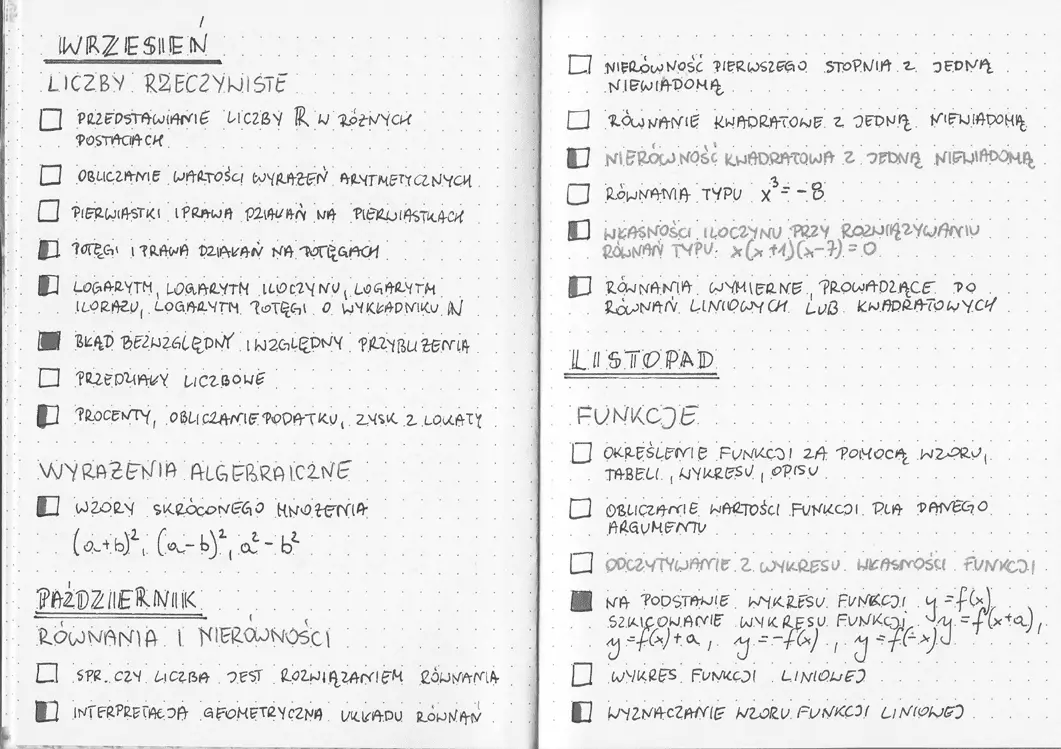 WRZESIEŃ
LICZBY RZECZYWISTE
PRZEDSTAWIANIE LICZBY R W RÓŻNYCH
POSTACIACH
OBLICZANIE WARTOŚCI WYRAŻEŃ ARYTMETYCZNYCH
PIERWIASTKI I PRAWA DZIAŁAŃ NA PIERWIASTKACH
POTĘGI I PRAWA DZIAŁAŃ NA POTĘGACH
LOGARYTM, LOGARYTM ILOCZYNU, LOGARYTM
ILORAZU, LOGARYTM POTĘGI O WYKŁADNIKU N
BŁĄD BEZWZGLĘDNY I WZGLĘDNY PRZYBLIŻENIA
PRZEDZIAŁY LICZBOWE
PROCENTY, OBLICZANIE PODATKU, ZYSK Z LOKATY
WYRAŻENIA ALGEBRAICZNE
WZORY SKRÓCONEGO MNOŻENIA
(a+b)², (a-b)², a²-b²
PAŹDZIERNIK
RÓWNANIA I NIERÓWNOŚCI
SPR. CZY LICZBA JEST ROZWIĄZANIEM RÓWNANIA
INTERPRETACJA GEOMETRYCZNA UKŁADU RÓWNAŃ
NIERÓWNOŚĆ PIERWSZEGO STOPNIA Z JEDNĄ
NIEWIADOMĄ
RÓWNANIE KWADRATOWE Z JEDNĄ NIEWIADOMĄ
NIERÓWNOŚĆ KWADRATOWA Z JEDNĄ NIEWIADOMĄ
RÓWNANIA TYPU x³=-8
WŁASNOŚCI ILOCZYNU PRZY ROZWIĄZYWANIU
RÓWNAŃ TYPU: x(x+1)(x-7)=0
RÓWNANIA WYMIERNE PROWADZĄCE DO
RÓWNAŃ LINIOWYCH LUB KWADRATOWYCH
LISTOPAD
FUNKCJE
OKREŚLENIE FUNKCJI ZA POMOCĄ WZORU,
TABELI, WYKRESU, OPISU
OBLICZANIE WARTOŚCI FUNKCJI DLA DANEGO
ARGUMENTU
ODCZYTYWANIE Z WYKRESU WŁASNOŚCI FUNKCJI
NA PODSTAWIE WYKRESU FUNKCJI y=f(x)
SZKICOWANIE WYKRESU FUNKCJI y=f(x+a),
y=f(x)+a, y=-f(x), y=f(-x)
WYKRES FUNKCJI LINIOWEJ
WYZNACZANIE WZORU FUNKCJI LINIOWEJ